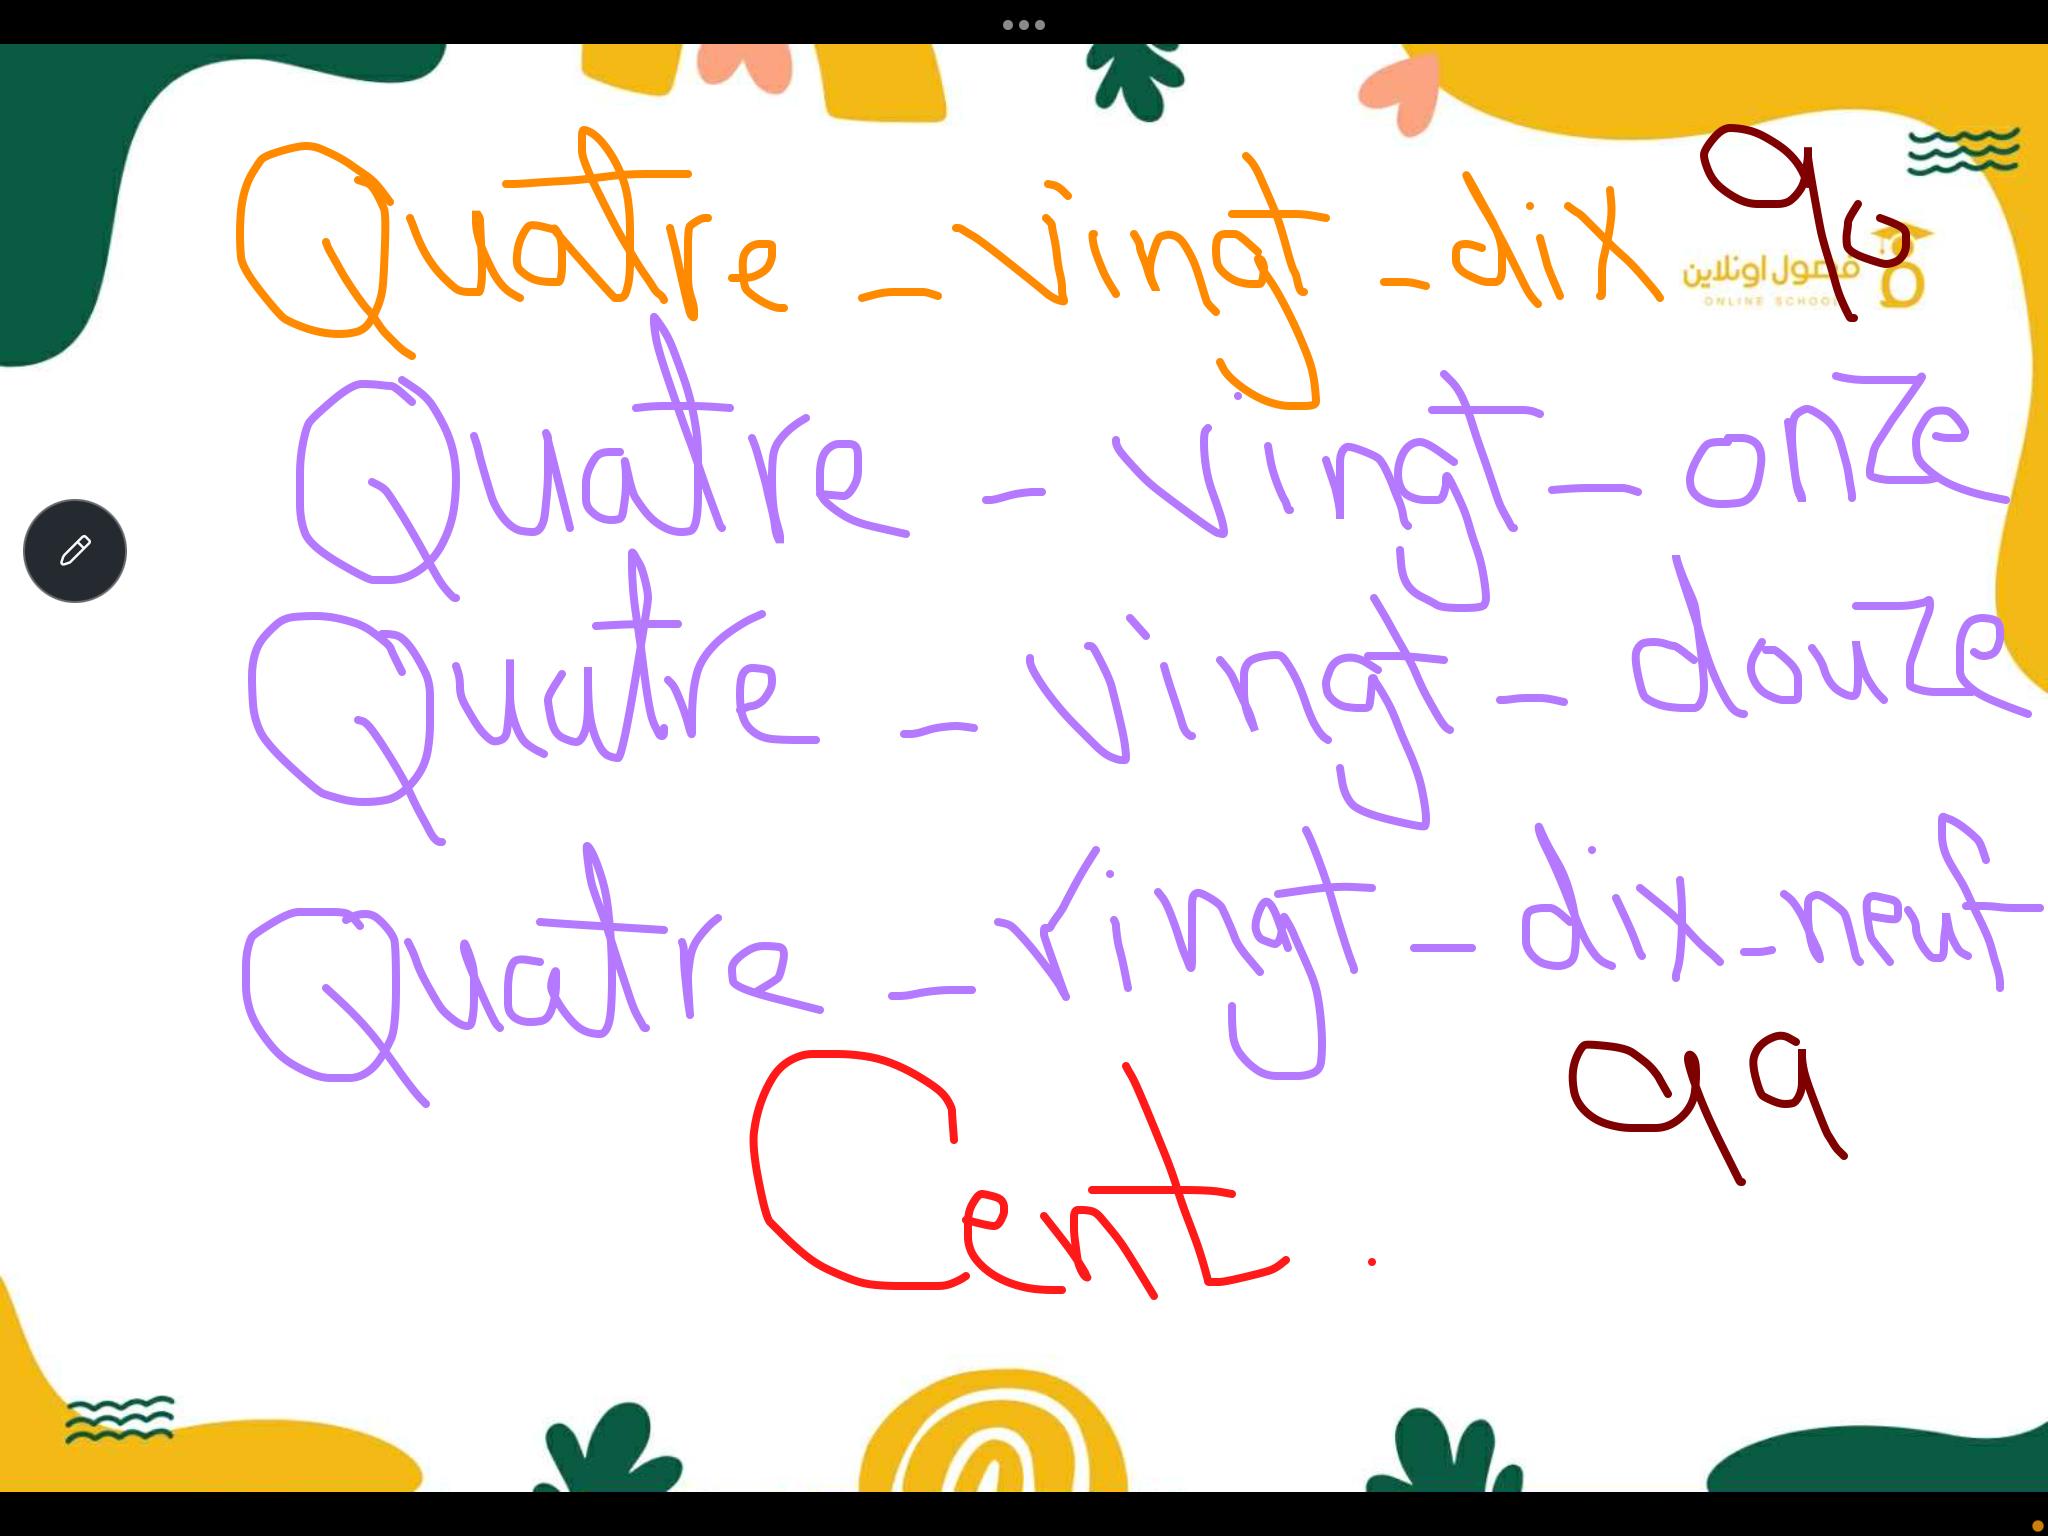 Quatre - vingt - dix 90
فصول اونلاين
ONLINE SCHOOL
Quatre - vingt - onze
Quatre - vingt - douze
Quatre - vingt - dix - neuf
99
Cent .